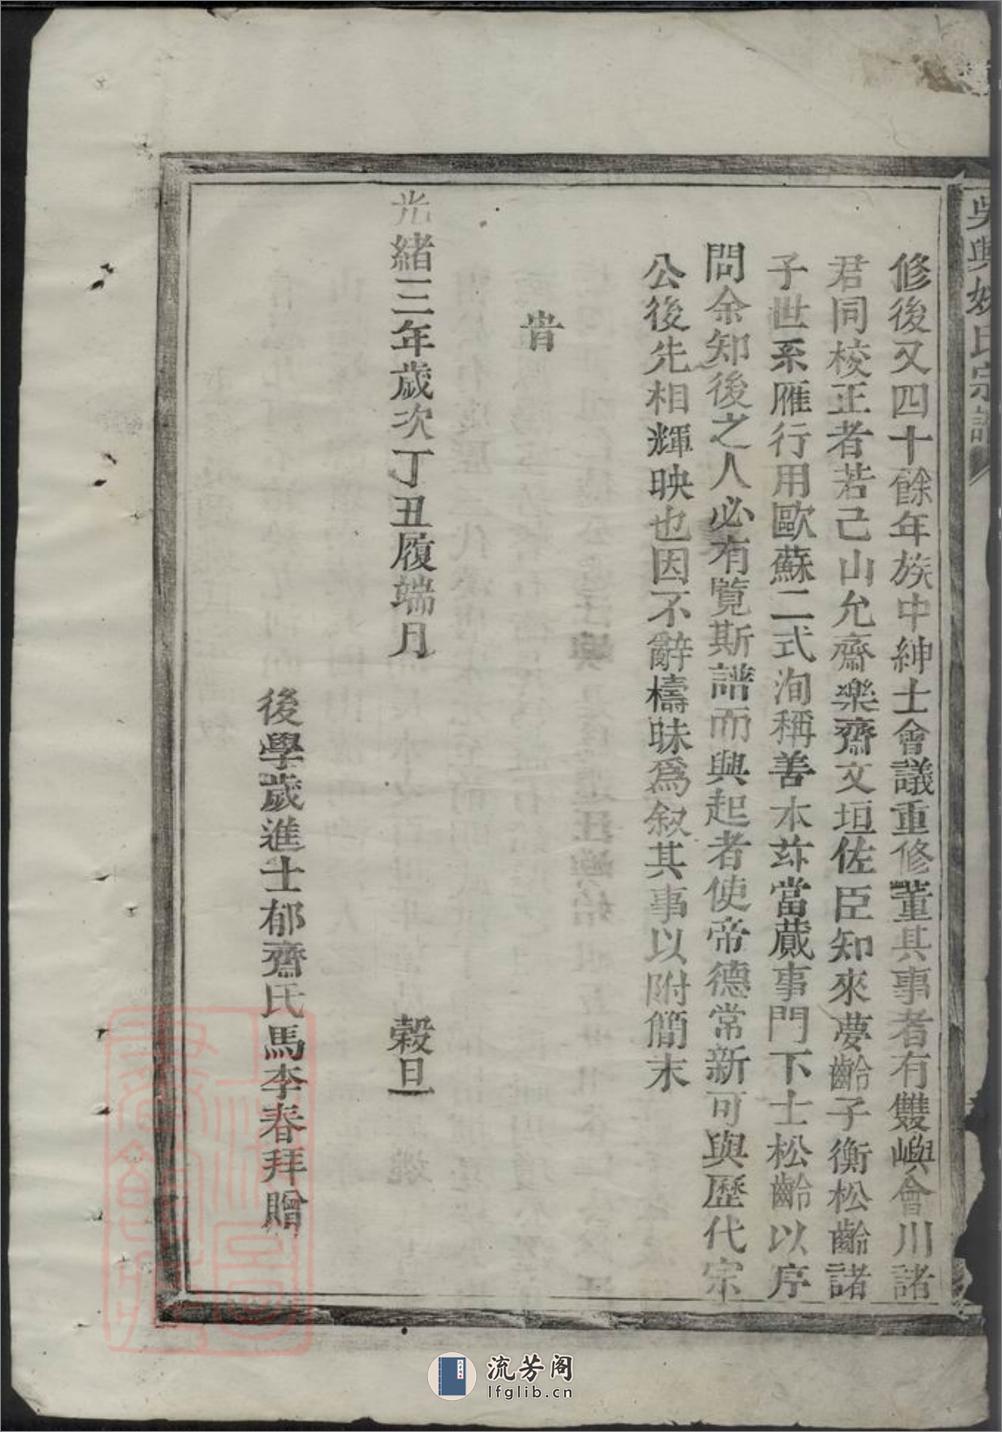 吳興姚氏宗譜
修後又四十餘年族中紳士會議重修董其事者有雙嶼會川諸
君同校正者若己山允齋樂齋文垣佐臣知來夢齡子衡松齡諸
子世系雁行用歐蘇二式洵稱善本玆當蕆事門下士松齡以序
問余知後之人必有覽斯譜而興起者使帝德常新可與歷代宗
公後先相輝映也因不辭檮昧爲叙其事以附簡末
旹
光緒三年歲次丁丑履端月 穀旦
後學歲進士郁齋氏馬李春拜贈
流芳阁
lfglib.cn